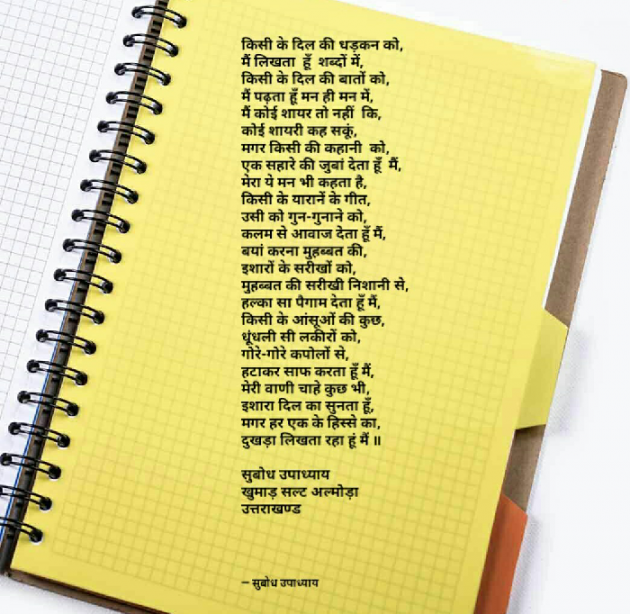 किसी के दिल की धड़कन को,
मैं लिखता हूँ शब्दों में,
किसी के दिल की बातों को,
मैं पढ़ता हूँ मन ही मन में,
मैं कोई शायर तो नहीं कि,
कोई शायरी कह सकूं,
मगर किसी की कहानी को,
एक सहारे की जुबां देता हूँ मैं,
मेरा ये मन भी कहता है,
किसी के यारानें के गीत,
उसी को गुन-गुनाने को,
कलम से आवाज देता हूँ मैं,
बयां करना मुहब्बत की,
इशारों के सरीखों को,
मुहब्बत की सरीखी निशानी से,
हल्का सा पैगाम देता हूँ मैं,
किसी के आंसूओं की कुछ,
धूंधली सी लकीरों को,
गोरे-गोरे कपोलों से,
हटाकर साफ करता हूँ मैं,
मेरी वाणी चाहे कुछ भी,
इशारा दिल का सुनता हूँ,
मगर हर एक के हिस्से का,
दुखड़ा लिखता रहा हूं मैं ॥
सुबोध उपाध्याय
खुमाड़ सल्ट अल्मोड़ा
उत्तराखण्ड
– सुबोध उपाध्याय